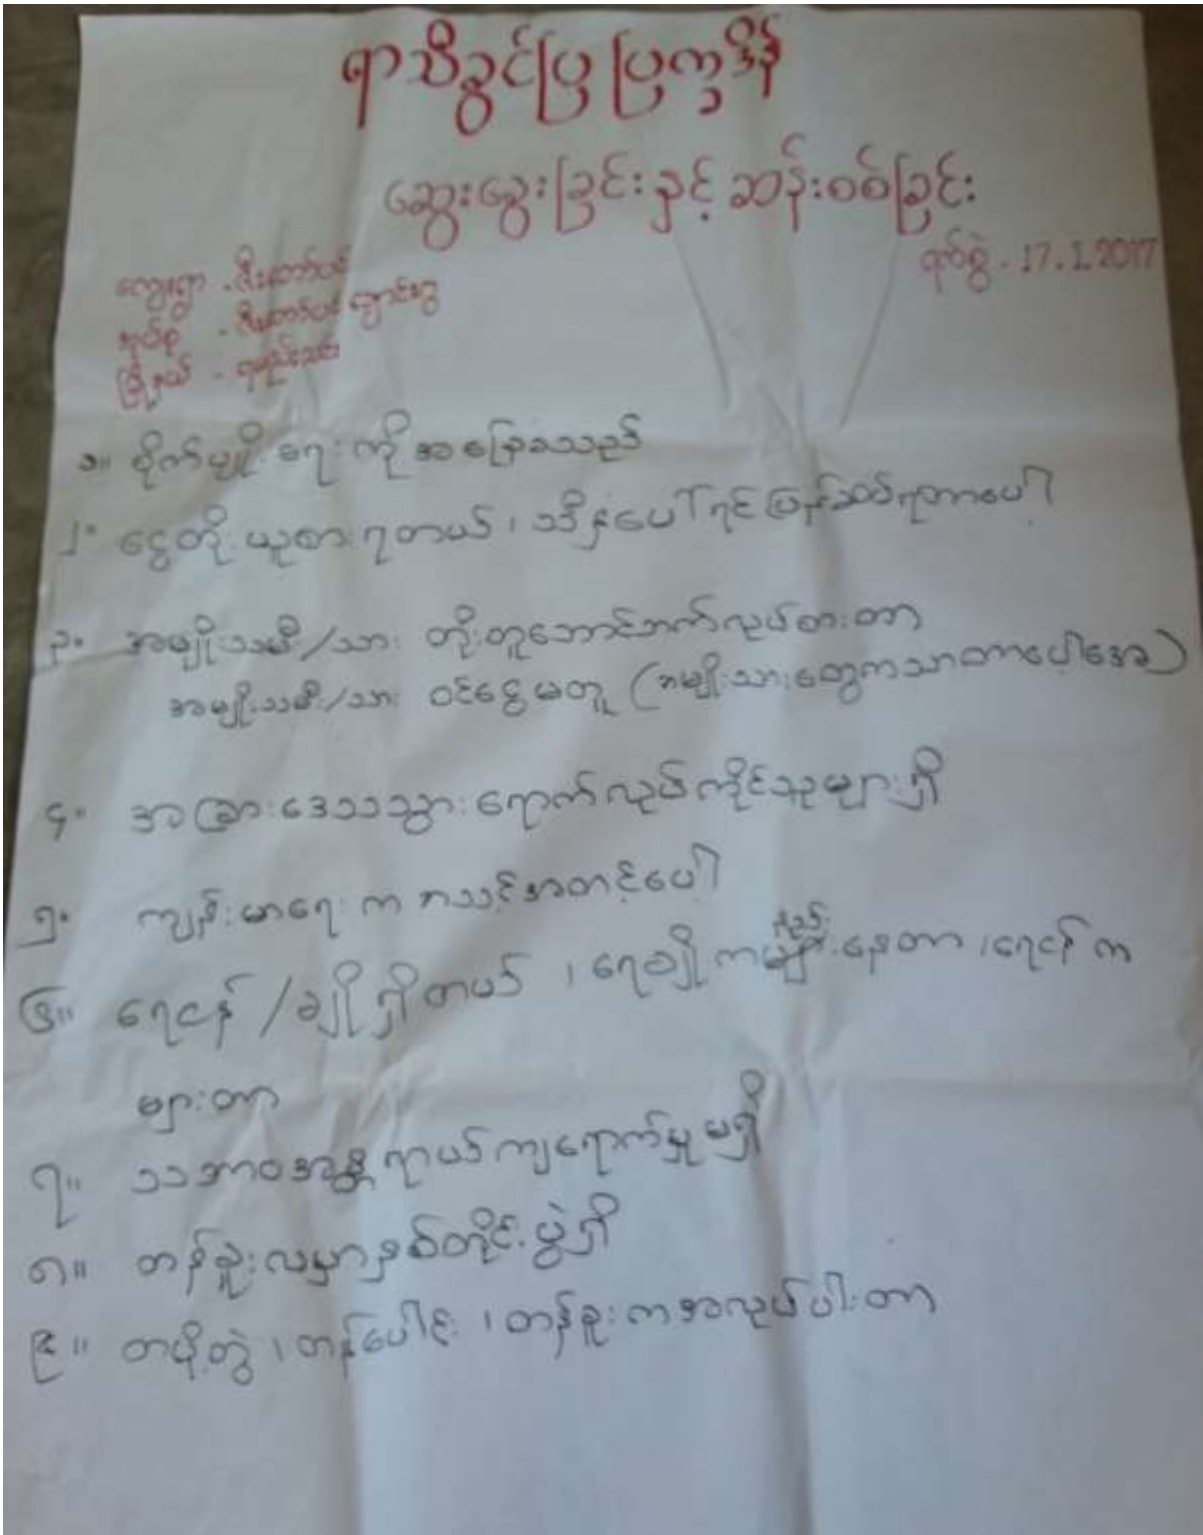 ရာသီခွင်ပြ ပြက္ခဒိန်
ဆွေးနွေးခြင်းနှင့် ဆန်းစစ်ခြင်း
ရက်စွဲ - 17.1.2017
ကျေးရွာ - ဇီးတော်ပင်
အုပ်စု - ဇီးတော်ပင်
မြို့နယ် - ရမည်းသင်း
၁။ စိုက်ပျိုးရေးကိုအခြေခံသည်
၂။ ငွေတိုးယူစားရတယ်၊ သီးနှံပေါ်ရင်ပြန်ဆပ်ရတာပေါ့
၃။ အမျိုးသမီး/သား တိုးတူဘောင်ဘက်လုပ်စားတာ
အမျိုးသမီး/သား ဝင်ငွေမတူ (အမျိုးသားတွေကသာတာပေါ့အေ)
၄။ အခြားဒေသသွားရောက်လုပ်ကိုင်သူများရှိ
၅။ ကျန်းမာရေးကအသင့်အတင့်ပေါ့
၆။ ရေငန်/ချိုရှိတယ်၊ ရေချိုကနည်းနေတာ၊ ရေငန်က
များတာ
၇။ သဘာဝအန္တရာယ်ကျရောက်မှုမရှိ
၈။ တန်ခူးလမှာနှစ်တိုင်းပွဲရှိ
၉။ တပို့တွဲ၊ တန်ပေါင်း၊ တန်ခူးကအလုပ်ပါးတာ